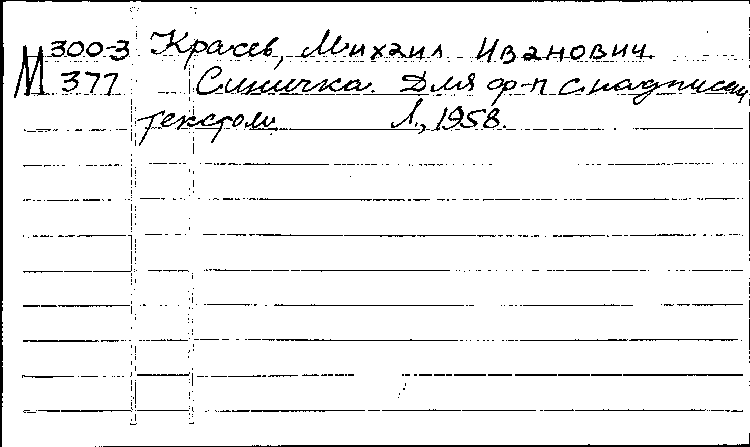 М 300-3 Красев, Михаил Иванович.
377 Синичка. Для ф-п с надписан.
текстом Л., 1958.